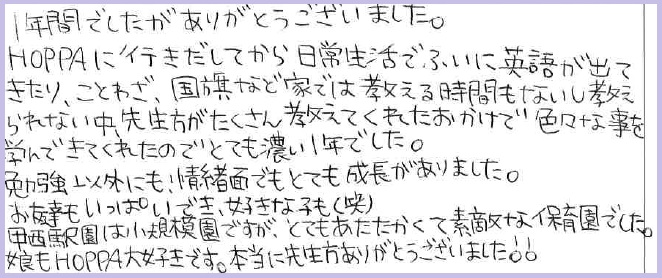 1年間でしたがありがとうございました。
HOPPAに行きだしてから日常生活でふいに英語が出て
きたり、ことわざ、国旗など家では教える時間もないし教え
られない中、先生方がたくさん教えてくれたおかげで色々な事を
学んできてくれたのでとても濃い1年でした。
勉強以外にも、情緒面でもとても成長がありました。
お友達もいっぱいでき、好きな子も(笑)
甲西駅園は小規模園ですが、とてもあたたかくて素敵な保育園でした。
娘もHOPPA大好きです。本当に先生方ありがとうございました!!